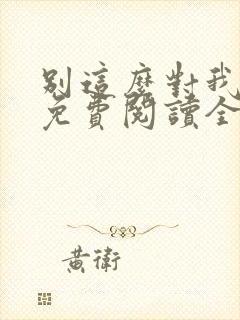 別這麼對我
免費閱讀全
黃衛